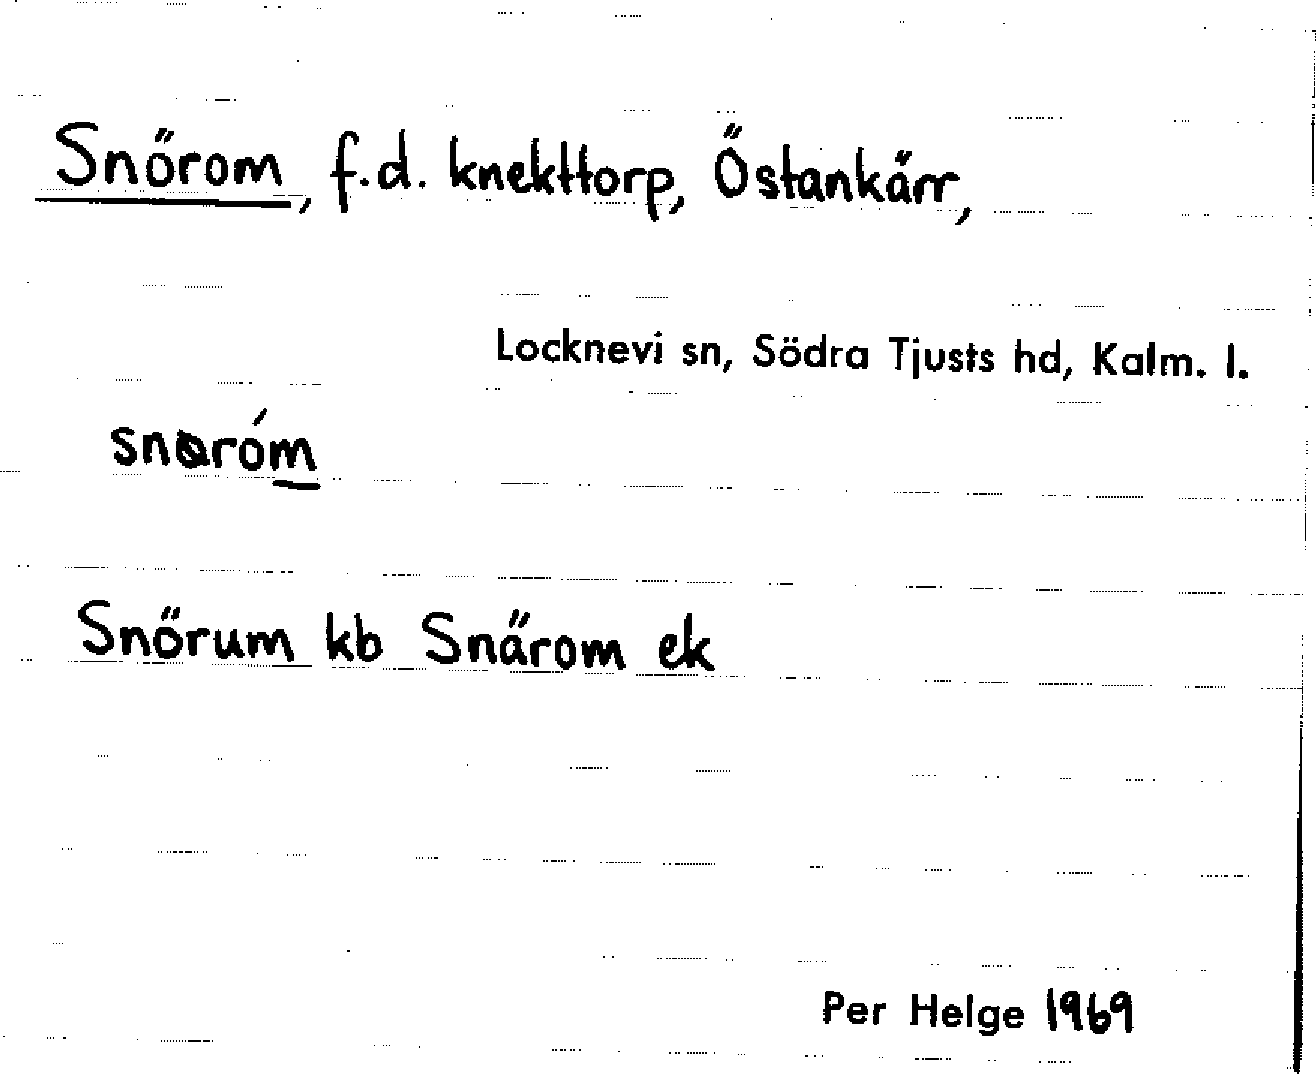 Snörom, f.d. knekttorp, Östankärr,
Locknevi sn, Södra Tjusts hd, Kalm. l.
Snörum kb Snärom ek
Per Helge 1969